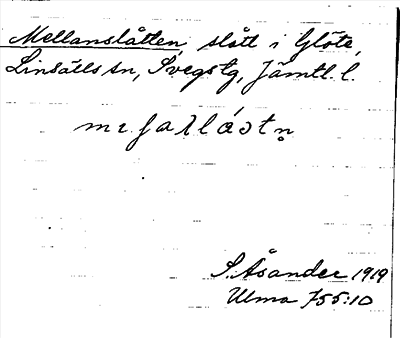 Mellanslåtten, slått i Glöte,
Linsälls sn, Svegs tg, Jämtl. l.
S. Åsander 1919
Ulma 755:10